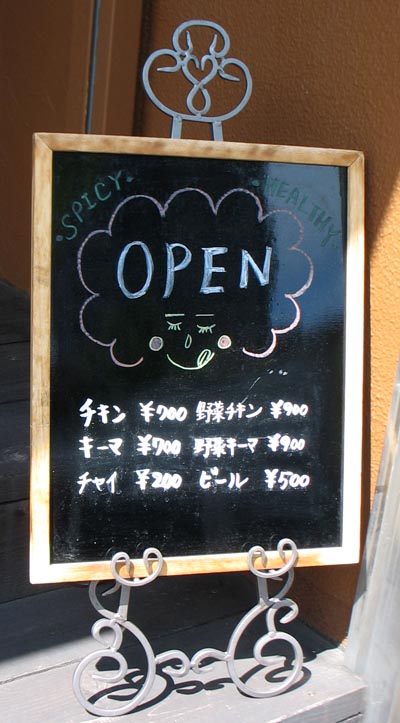 •SPICY• •HEALTHY•
OPEN
チキン ¥700 野菜チキン ¥900
キーマ ¥700 野菜キーマ ¥900
チャイ ¥200 ビール ¥500